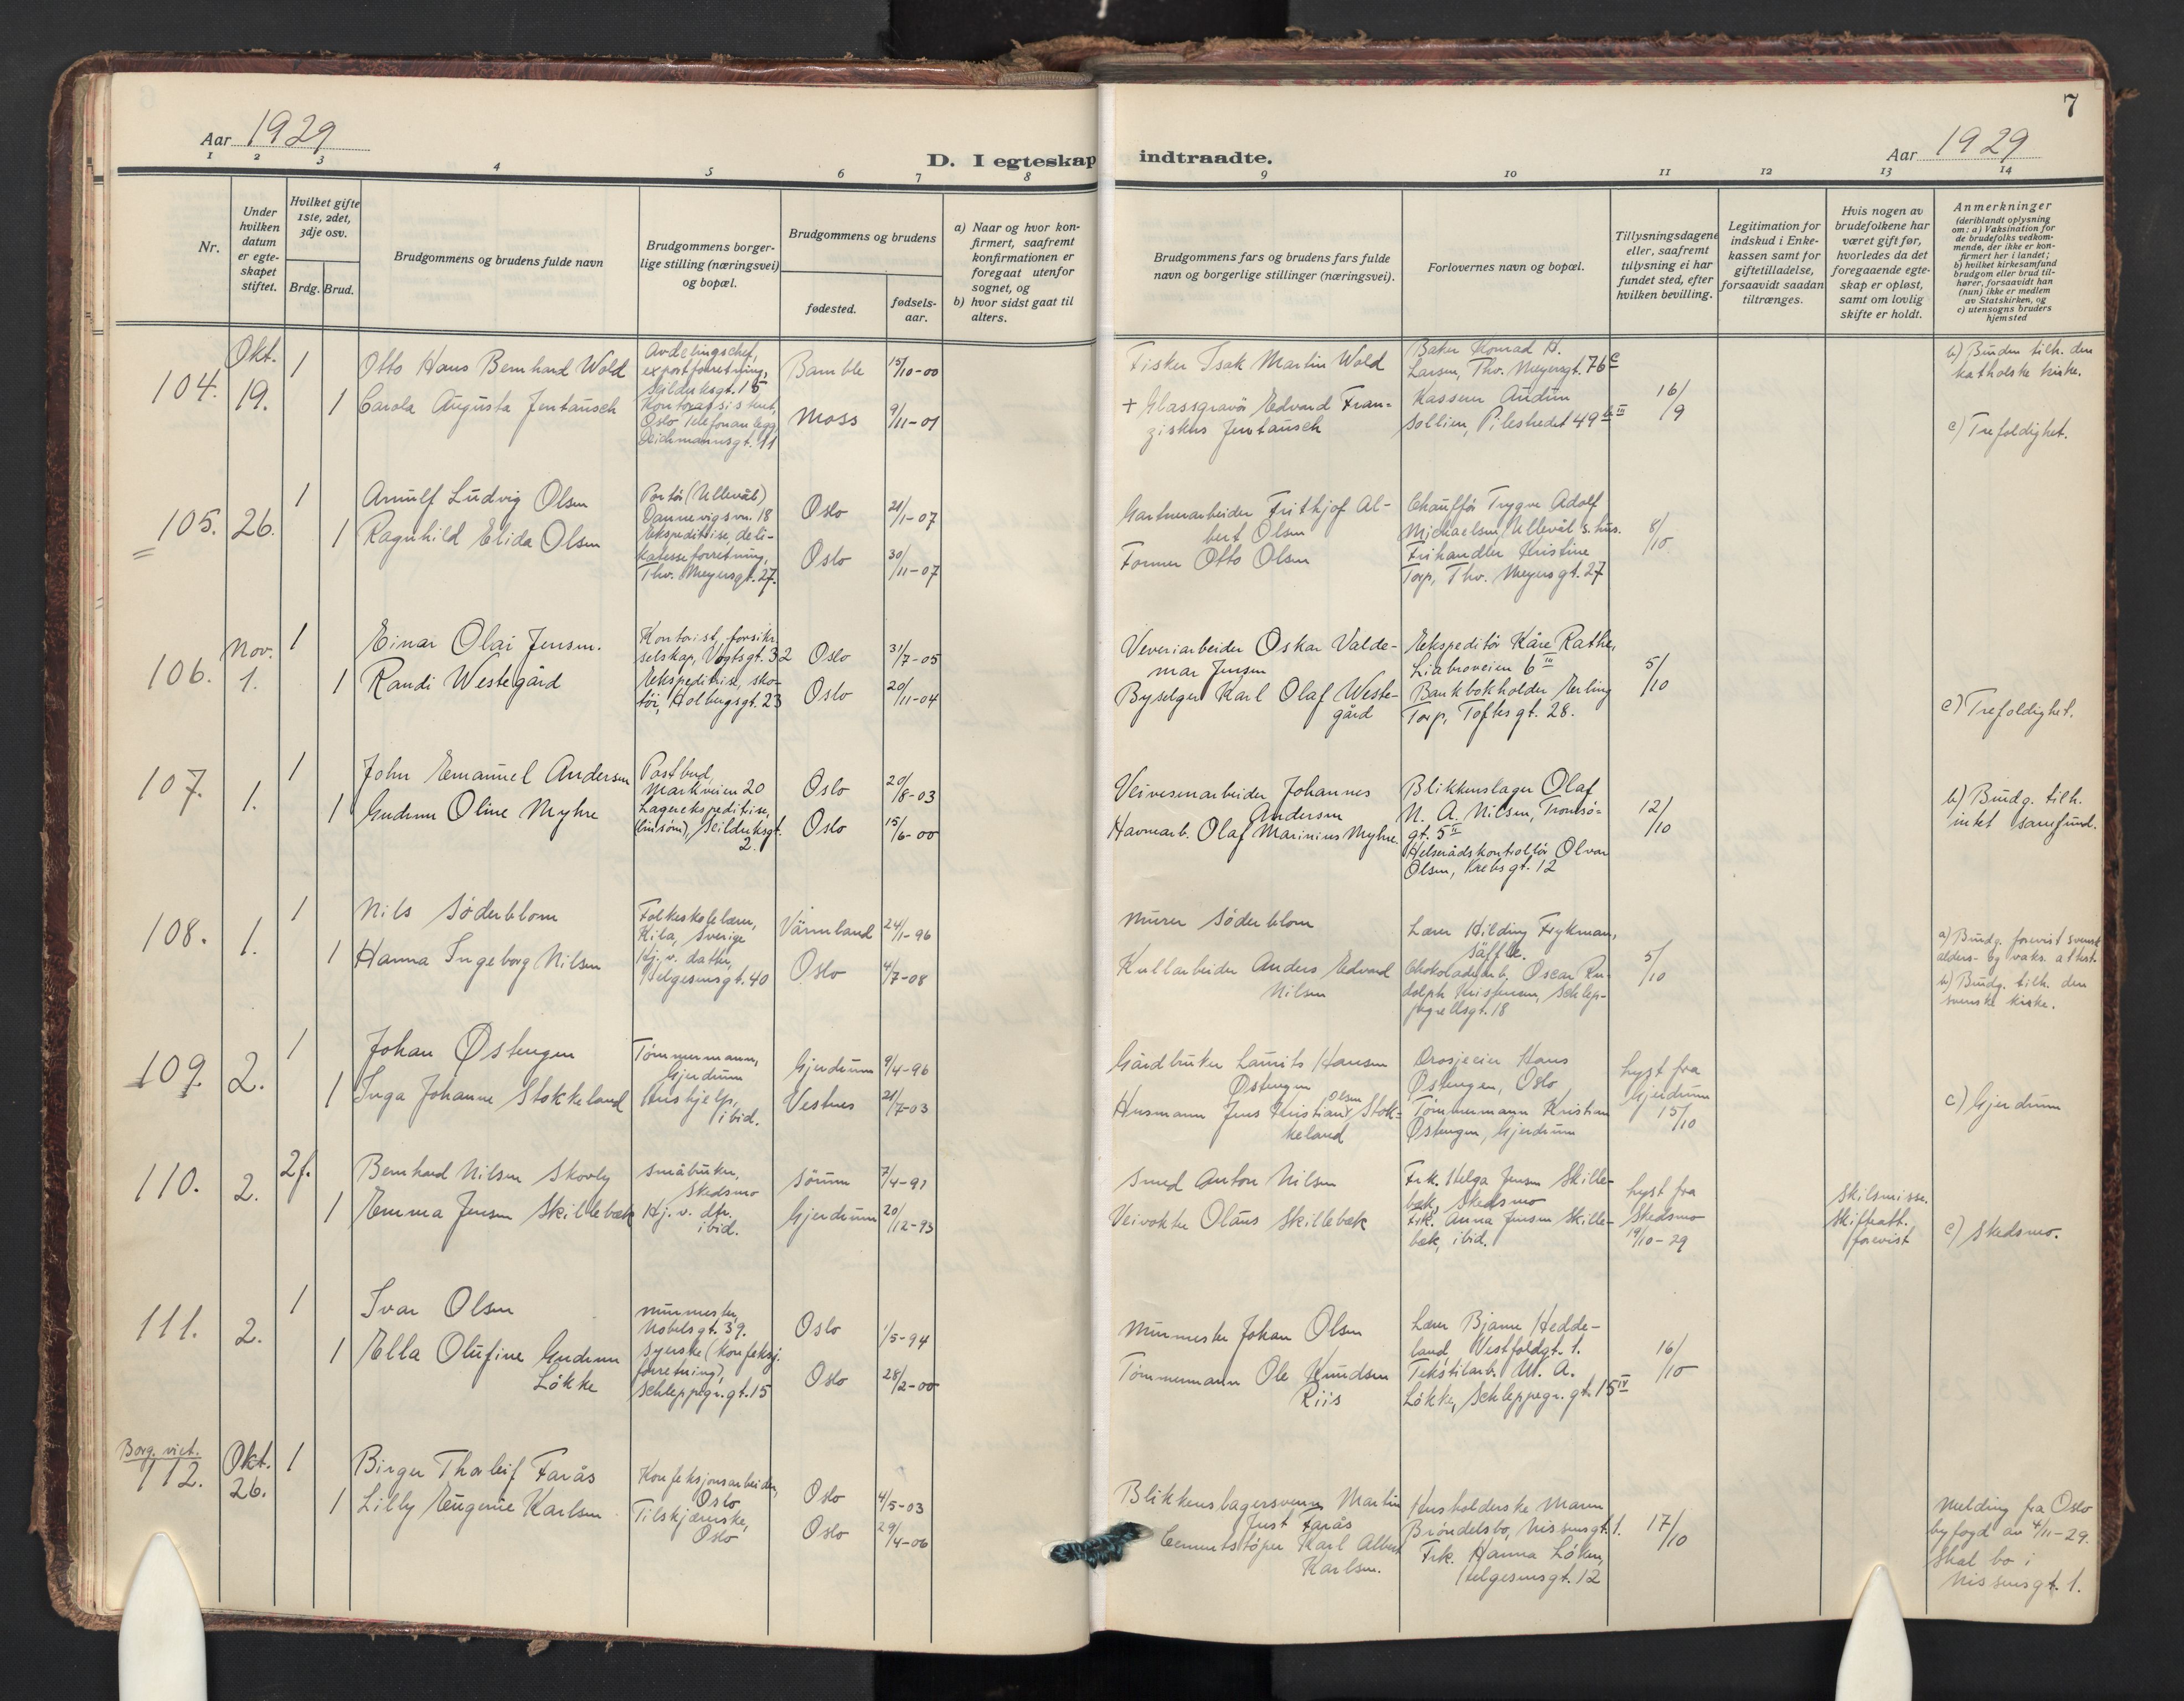 7
Aar 1929
D. I egteskap indtraadte.
Aar 1929
1 2 3 4 5 6 7 8 9 10 11 12 13 14
Nr.
Under hvilken datum er egteskapet stiftet.
Hvilket gifte 1ste, 2det, 3dje osv.
Brdg. Brud.
Brudgommens og brudens fulde navn
Brudgommens borgerlige stilling (næringsvei) og bopæl.
Brudgommens og brudens
fødested.
fødselsaar.
a) Naar og hvor konfirmert, saafremt konfirmationen er foregaat utenfor sognet, og
b) hvor sidst gaat til alters.
Brudgommens fars og brudens fars fulde navn og borgerlige stillinger (næringsvei).
Forlovernes navn og bopæl.
Tillysningsdagene eller, saafremt tillysning ei har fundet sted, efter hvilken bevilling.
Legitimation for indskud i Enkekassen samt for giftetilladelse, forsaavidt saadan tiltrænges.
Hvis nogen av brudefolkene har været gift før, hvorledes da det foregaaende egteskap er opløst, samt om lovlig skifte er holdt.
Anmerkninger
(deriblandt oplysning om: a) Vaksination for de brudefolks vedkommende, der ikke er konfirmert her i landet;
b) hvilket kirkesamfund brudgom eller brud tilhører, forsaavidt han (hun) ikke er medlem av Statskirken, og
c) utensogns bruders hjemsted
104. Okt. 19.
1 Otto Hans Bernhard Wold
Avdelingschef, exportforretning, Seilduksgt. 15
Bamble 15/10-00
Fisker Isak Martin Wold
Baker Konrad H. Larsen, Thv. Meyersgt. 76 c
1 Carola Augusta Jentausch
Kontorassistent, Oslo Telefonanlegg, Deichmannsgt. 11
Moss 9/11-01
+ Glassgravör Edvard Franziskus Jentausch
Kasserer Audun Sollien, Pilestredet 49
16/9
b) Bruden tilh. den katholske kirke.
c) Trefoldighet.
105. 26.
1 Arnulf Ludvig Olsen
Portör (Ullevål) Dannevigsvn. 18
Oslo 21/1-07
Gartnerarbeider Frithjof Albert Olsen
Chaufför Trygve Adolf Michaelsen, Ullevål s.hus.
1 Ragnhild Elida Olsen
Ekspeditrise, delikatesseforretning, Thv. Meyersgt. 27.
Oslo 30/11-07
Former Otto Olsen
Frihandler Kristine Torp, Thv. Meyersgt. 27
8/10.
106. Nov. 1.
1 Einar Olai Jensen.
Kontorist, forsikr. selskap, Vogtsgt. 32
Oslo 31/7-05
Veveriarbeider Oskar Valdemar Jensen
Ekspeditör Kåre Rathe, Liabroveien 6 III
1 Randi Westegård
Ekspeditrise, skotöi, Holbergsgt. 23
Oslo 20/11-04
Byselger Karl Olaf Westegård
Bankbokholder Erling Torp, Toftesgt. 28.
5/10
c) Trefoldighet.
107. 1.
1 John Emanuel Andersen
Postbud, Markveien 20
Oslo 20/8-03
Veivesenarbeider Johannes Andersen
Blikkenslager Olaf N. A. Nilsen, Tromsögt. 5 II
1 Gudrun Oline Myhre
Lagerekspeditrise, (linsöm), Seilduksgt. 2.
Oslo 15/6-00
Havnearb. Olaf Marinius Myhre.
Helserådskontrollör Olvar Olsen, Krebsgt. 12
12/10
b) Brudg. tilh. intet samfund.
108. 1.
1 Nils Söderblom
Folkeskolelærer, Kila, Sverige
Värmland 24/1-96
Murer Söderblom
Lærer Hilding Frykman, Säffle.
1 Hanna Ingeborg Nilsen
Hj. v. datter, Helgesensgt. 40
Oslo 4/7-08
Kullarbeider Anders Edvard Nilsen
Chokoladearb. Oscar Rudolph Kristensen, Schleppegrellsgt. 18
5/10
a) Brudg. forevist svensk alders- og vaks. attest.
b) Brudg. tilh. den svenske kirke.
109. 2.
1 Johan Østengen
Tømmermann, Gjerdrum
Gjerdrum 9/4-96
Gårdbruker Laurits Hansen Østengen
Drosjeeier Hans Østengen, Oslo
1 Inga Johanne Stokkeland
Hushjelp, ibid.
Vestnes 21/7-03
Husmann Jens Kristian Olsen Stokkeland
Tømmermann Kristian Østengen, Gjerdrum
Lyst fra Gjerdrum 15/10
c) Gjerdrum
110. 2.
2 f. Bernhard Nilsen Skovly
Småbruker, Skedsmo
Sörum 7/4-91
Smed Anton Nilsen
Frk. Helga Jensen Skillebæk, Skedsmo
1 Emma Jensen Skillebæk
Hj. v. dtr. ibid.
Gjerdrum 20/12-93
Veivokter Olaus Skillebæk
Frk. Anna Jensen Skillebæk, ibid.
Lyst fra Skedsmo 19/10-29
Skilsmisse. Skifteatt. forevist
c) Skedsmo.
111. 2.
1 Ivar Olsen
Murmester, Nobelsgt. 39.
Oslo 1/5-94
Murmester Johan Olsen
Lærer Bjarne Heddeland, Vestfoldgt. 1.
1 Ella Olufine Gudrun Lökke
Syerske (konfeksj. forretning), Schleppegr.gt. 15
Oslo 28/2-00
Tømmermann Ole Knudsen Riis
Tekstilarb. M. A. Lökke, Schleppegr. gt. 15 IV
16/10
Borg. viet.
112. Okt. 26.
1 Birger Thorleif Farås
Konfeksjonsarbeider, Oslo
Oslo 4/5-03
Blikkenslagersvenn Martin Just Farås
Husholderske Maren Bröndelsbo, Nissensgt. 1.
1 Lilly Eugenie Karlsen
Tilskjærerske, Oslo
Oslo 29/4-06
Cementstöper Karl Albert Karlsen.
Frk. Hanna Löken, Helgesensgt. 12
17/10
Melding fra Oslo byfogd av 4/11-29.
Skal bo i Nissensgt. 1.